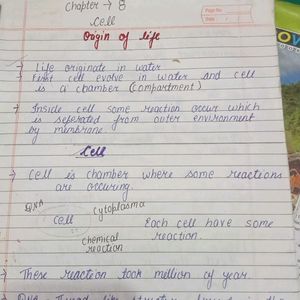 Chapter → 8
Cell
Page No.
Date
Origin of life
→ Life originate in water
→ First cell evolve in water and cell
is a chamber (Compartment)
→ Inside cell some reaction occur which
is seperated from outer environment
by membrane
Cell
→ Cell is chamber where some reactions
are occuring.
DNA
Cytoplasma
Cell
Each cell have some
reaction.
chemical
reaction
→ These reaction took million of year.
→ DNA Thread like structure